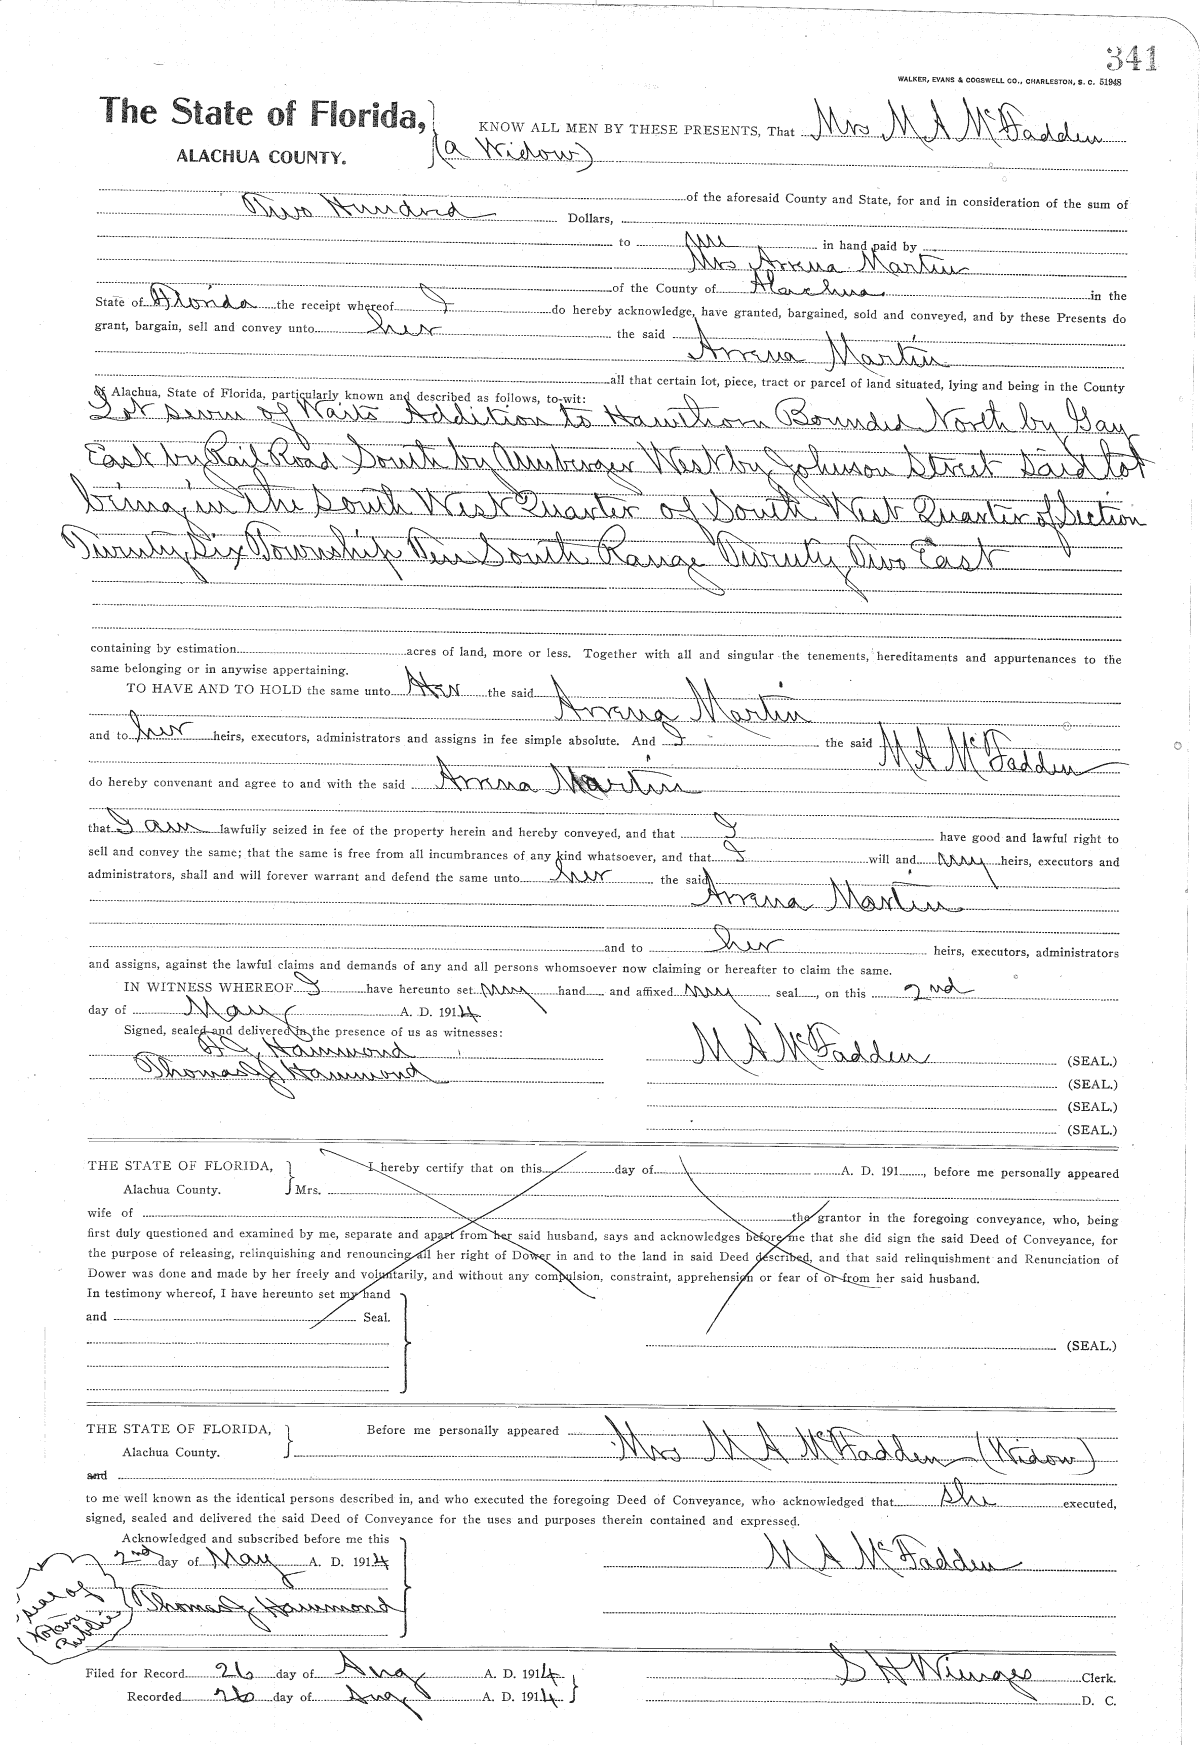 341
WALKER, EVANS & COGSWELL CO., CHARLESTON, S. C. 51948
The State of Florida,
ALACHUA COUNTY.
KNOW ALL MEN BY THESE PRESENTS, That Mrs M A McFadden
(a Widow)
of the aforesaid County and State, for and in consideration of the sum of
Two Hundred Dollars,
to me in hand paid by
Mrs Arrena Martin
of the County of Alachua in the
State of Florida the receipt whereof I do hereby acknowledge, have granted, bargained, sold and conveyed, and by these Presents do
grant, bargain, sell and convey unto her the said Arrena Martin
all that certain lot, piece, tract or parcel of land situated, lying and being in the County
of Alachua, State of Florida, particularly known and described as follows, to-wit:
Lot seven of Waits Addition to Hawthorn Bounded North by Gay
East by Rail Road South by Umberger West by Johnson Street Said lot
being in the South West Quarter of South West Quarter of Section
Twenty Six Township Ten South Range Twenty Two East
containing by estimation acres of land, more or less. Together with all and singular the tenements, hereditaments and appurtenances to the
same belonging or in anywise appertaining.
TO HAVE AND TO HOLD the same unto Her the said Arrena Martin
and to her heirs, executors, administrators and assigns in fee simple absolute. And I the said M A McFadden
do hereby convenant and agree to and with the said Arrena Martin
that I am lawfully seized in fee of the property herein and hereby conveyed, and that I have good and lawful right to
sell and convey the same; that the same is free from all incumbrances of any kind whatsoever, and that I will and my heirs, executors and
administrators, shall and will forever warrant and defend the same unto her the said Arrena Martin
and to her heirs, executors, administrators
and assigns, against the lawful claims and demands of any and all persons whomsoever now claiming or hereafter to claim the same.
IN WITNESS WHEREOF I have hereunto set my hand and affixed my seal, on this 2nd
day of May A. D. 1914
Signed, sealed and delivered in the presence of us as witnesses:
Hammond
Thomas J Hammond
M A McFadden (SEAL.)
(SEAL.)
(SEAL.)
(SEAL.)
THE STATE OF FLORIDA,
Alachua County.
I hereby certify that on this day of A. D. 191, before me personally appeared
Mrs.
wife of the grantor in the foregoing conveyance, who, being
first duly questioned and examined by me, separate and apart from her said husband, says and acknowledges before me that she did sign the said Deed of Conveyance, for
the purpose of releasing, relinquishing and renouncing all her right of Dower in and to the land in said Deed described, and that said relinquishment and Renunciation of
Dower was done and made by her freely and voluntarily, and without any compulsion, constraint, apprehension or fear of or from her said husband.
In testimony whereof, I have hereunto set my hand
and Seal.
(SEAL.)
THE STATE OF FLORIDA,
Alachua County.
Before me personally appeared Mrs M A McFadden (Widow)
and
to me well known as the identical persons described in, and who executed the foregoing Deed of Conveyance, who acknowledged that she executed,
signed, sealed and delivered the said Deed of Conveyance for the uses and purposes therein contained and expressed.
Acknowledged and subscribed before me this
2nd day of May A. D. 1914
Thomas J Hammond
M A McFadden
Seal of
Notary
Public
Filed for Record 26 day of Aug A. D. 1914
Recorded 26 day of Aug A. D. 1914
S H Wienges Clerk.
D. C.